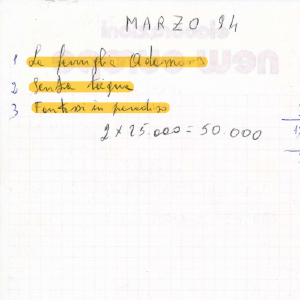 MARZO 94
1 La famiglia Addams
2 Senza tregua
3 Fantozzi in paradiso
2 x 25.000 = 50.000